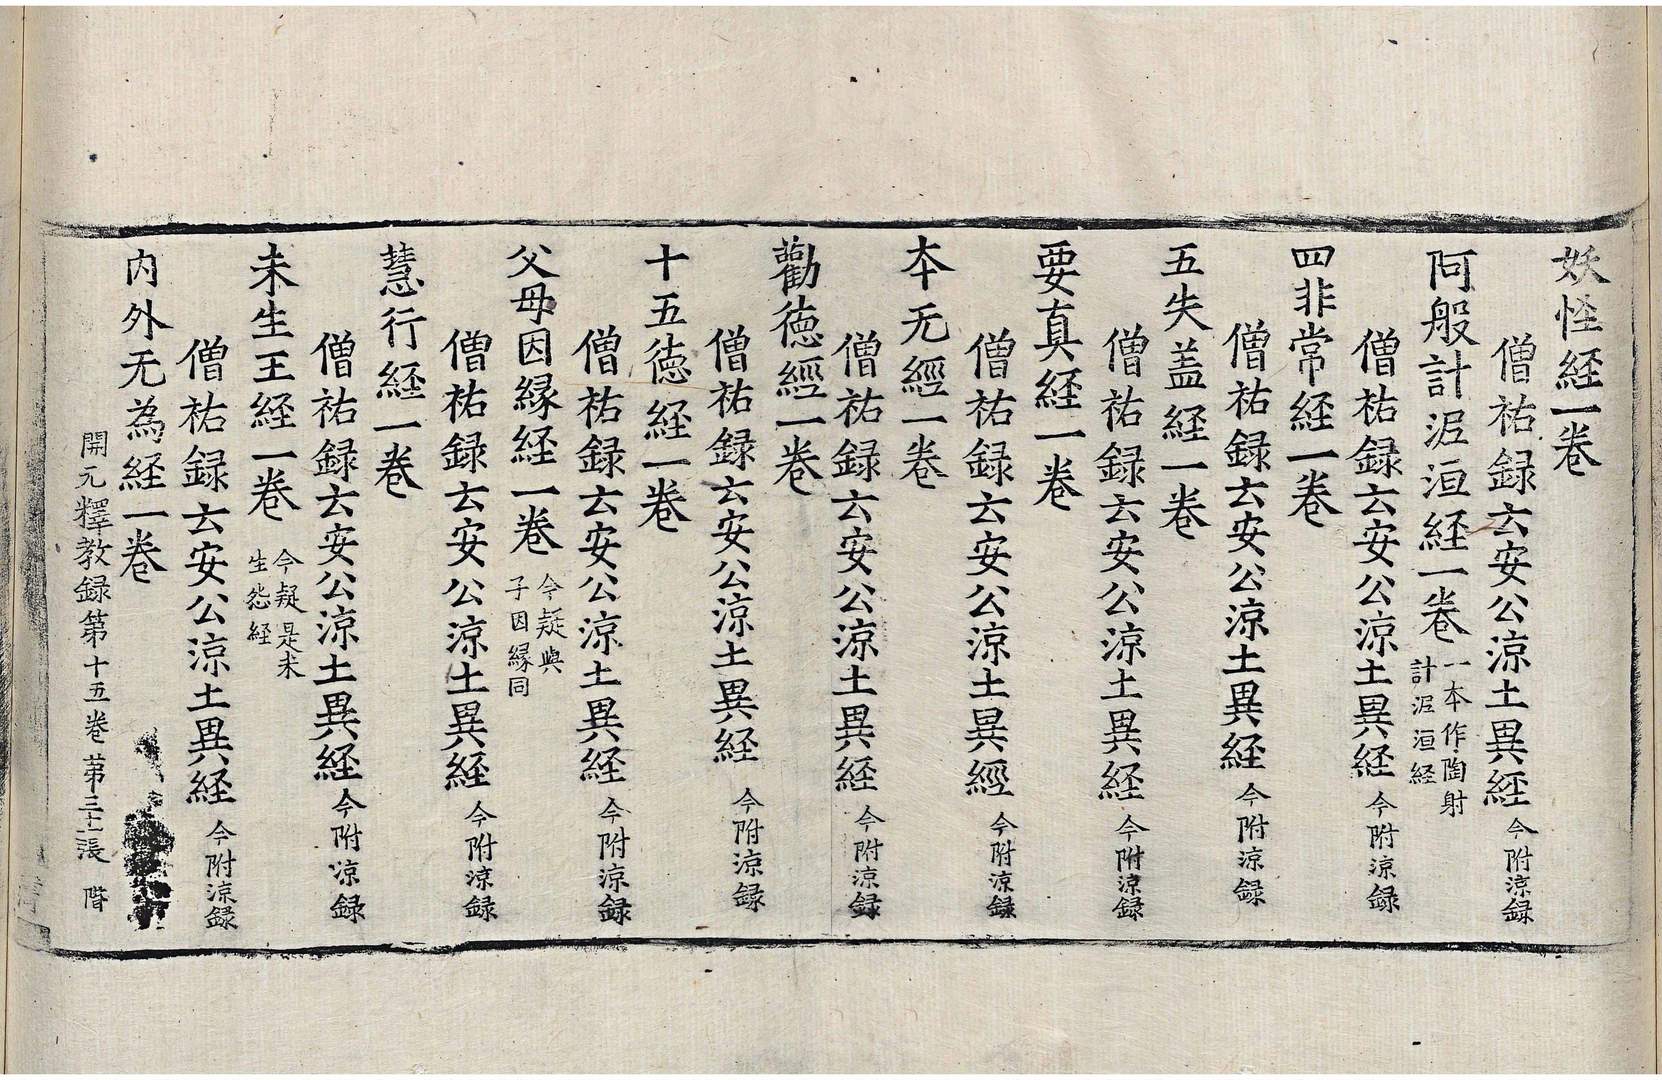 妖怪経一卷
僧祐録云安公涼土異経今附涼録
阿般計泥洹経一卷一本作陶射計泥洹経
僧祐録云安公涼土異経今附涼録
四非常経一卷
僧祐録云安公涼土異経今附涼録
五失盖経一卷
僧祐録云安公涼土異経今附涼録
要真経一卷
僧祐録云安公涼土異經今附涼録
本无經一卷
僧祐録云安公涼土異経今附涼録
勸徳經一卷
僧祐録云安公涼土異経今附涼録
十五徳経一卷
僧祐録云安公涼土異経今附涼録
父母因縁経一卷今疑與子因縁同
僧祐録云安公涼土異経今附涼録
慧行経一卷
僧祐録云安公涼土異経今附涼録
未生王経一卷今疑是未生怨経
僧祐録云安公涼土異経今附涼録
内外无為経一卷
開元釋教録第十五卷 第三十張 階